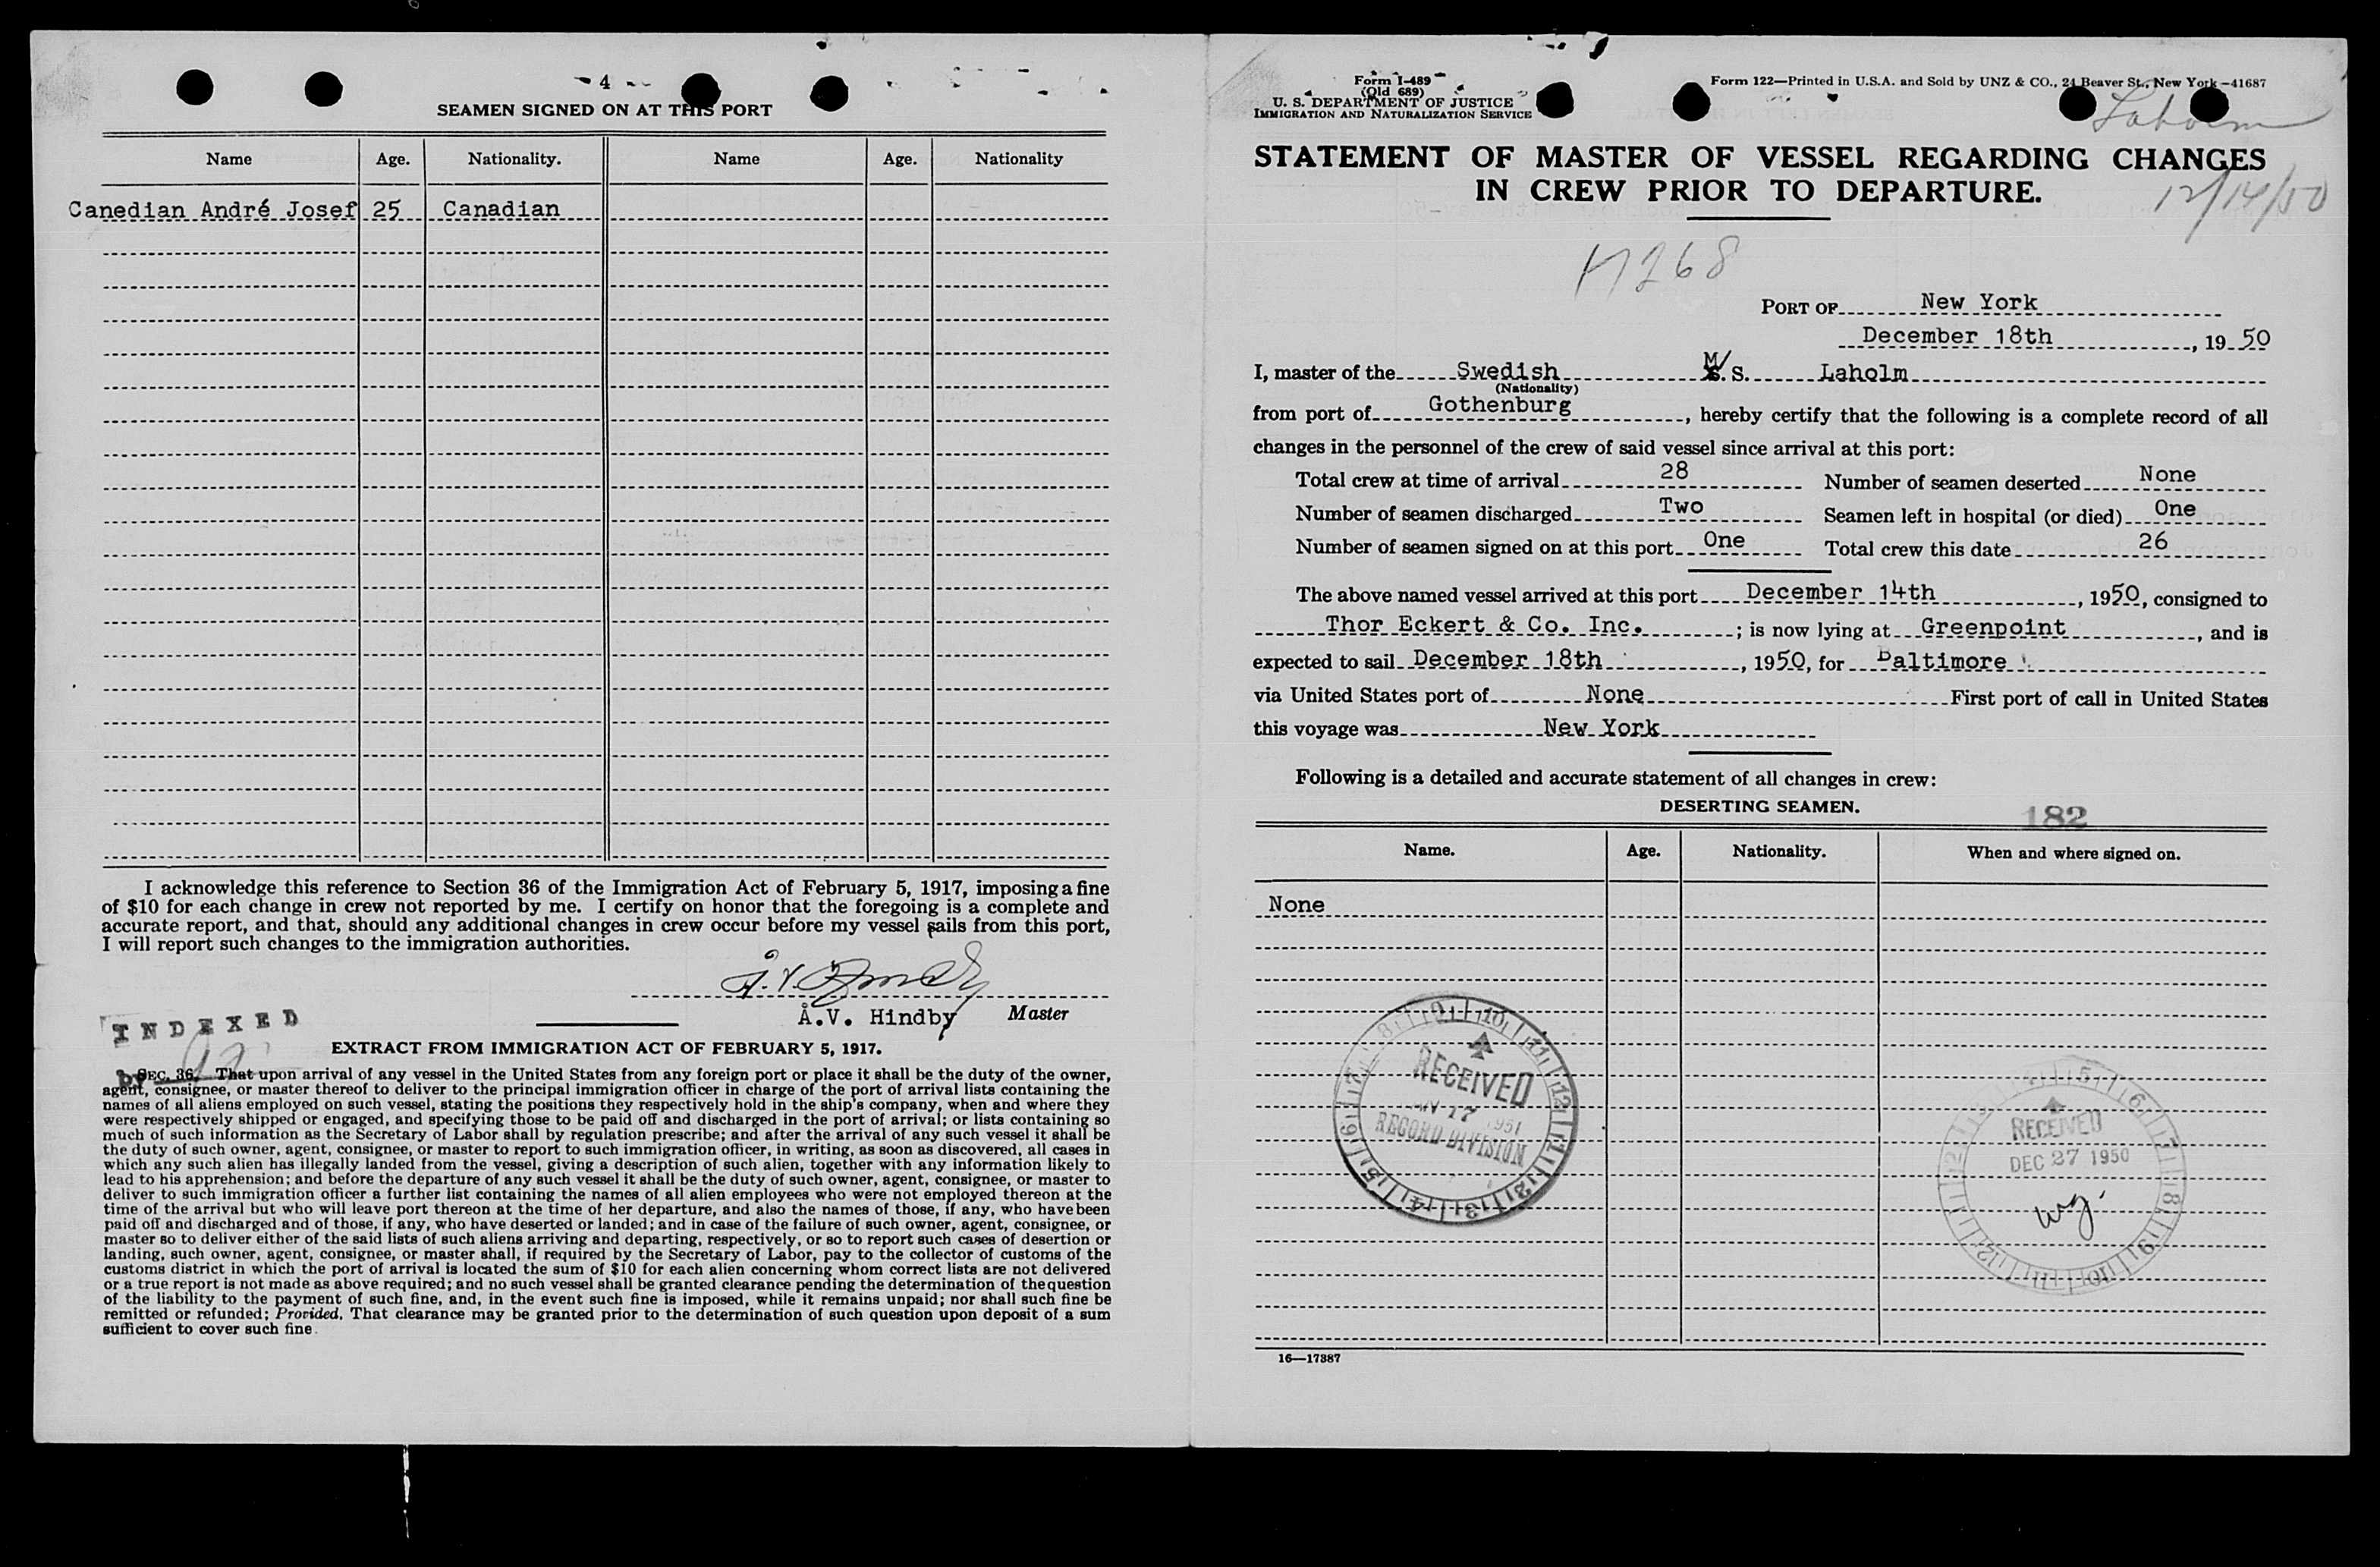 4
SEAMEN SIGNED ON AT THIS PORT
Name Age. Nationality. Name Age. Nationality
Canedian André Josef 25 Canadian
I acknowledge this reference to Section 36 of the Immigration Act of February 5, 1917, imposing a fine
of $10 for each change in crew not reported by me. I certify on honor that the foregoing is a complete and
accurate report, and that, should any additional changes in crew occur before my vessel sails from this port,
I will report such changes to the immigration authorities.
Å.V. Hindby Master
INDEXED
EXTRACT FROM IMMIGRATION ACT OF FEBRUARY 5, 1917.
by
SEC. 36. That upon arrival of any vessel in the United States from any foreign port or place it shall be the duty of the owner,
agent, consignee, or master thereof to deliver to the principal immigration officer in charge of the port of arrival lists containing the
names of all aliens employed on such vessel, stating the positions they respectively hold in the ship's company, when and where they
were respectively shipped or engaged, and specifying those to be paid off and discharged in the port of arrival; or lists containing so
much of such information as the Secretary of Labor shall by regulation prescribe; and after the arrival of any such vessel it shall be
the duty of such owner, agent, consignee, or master to report to such immigration officer, in writing, as soon as discovered, all cases in
which any such alien has illegally landed from the vessel, giving a description of such alien, together with any information likely to
lead to his apprehension; and before the departure of any such vessel it shall be the duty of such owner, agent, consignee, or master to
deliver to such immigration officer a further list containing the names of all alien employees who were not employed thereon at the
time of the arrival but who will leave port thereon at the time of her departure, and also the names of those, if any, who have been
paid off and discharged and of those, if any, who have deserted or landed; and in case of the failure of such owner, agent, consignee, or
master so to deliver either of the said lists of such aliens arriving and departing, respectively, or so to report such cases of desertion or
landing, such owner, agent, consignee, or master shall, if required by the Secretary of Labor, pay to the collector of customs of the
customs district in which the port of arrival is located the sum of $10 for each alien concerning whom correct lists are not delivered
or a true report is not made as above required; and no such vessel shall be granted clearance pending the determination of the question
of the liability to the payment of such fine, and, in the event such fine is imposed, while it remains unpaid; nor shall such fine be
remitted or refunded; Provided, That clearance may be granted prior to the determination of such question upon deposit of a sum
sufficient to cover such fine.
Form I-489
(Old 689)
U. S. DEPARTMENT OF JUSTICE
IMMIGRATION AND NATURALIZATION SERVICE
Form 122—Printed in U.S.A. and Sold by UNZ & CO., 24 Beaver St., New York—41687
Laholm
STATEMENT OF MASTER OF VESSEL REGARDING CHANGES
IN CREW PRIOR TO DEPARTURE.
12/14/50
17268
PORT OF New York
December 18th, 1950
I, master of the Swedish M/S. Laholm
(Nationality)
from port of Gothenburg, hereby certify that the following is a complete record of all
changes in the personnel of the crew of said vessel since arrival at this port:
Total crew at time of arrival 28 Number of seamen deserted None
Number of seamen discharged Two Seamen left in hospital (or died) One
Number of seamen signed on at this port One Total crew this date 26
The above named vessel arrived at this port December 14th, 1950, consigned to
Thor Eckert & Co. Inc.; is now lying at Greenpoint, and is
expected to sail December 18th, 1950, for Baltimore
via United States port of None First port of call in United States
this voyage was New York
Following is a detailed and accurate statement of all changes in crew:
DESERTING SEAMEN.
182
Name. Age. Nationality. When and where signed on.
None
RECEIVED
17 1951
RECORD DIVISION
RECEIVED
DEC 27 1950
16—17387